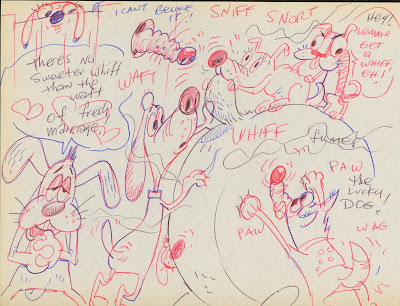 I CANT BELIEVE IT!
SNIFF
SNORT
HEY!
LEMME
GET
A
WHIFF
EH!
theres no
sweeter whiff
than the
waft
of fresh
marriage.
WAFT
WHIFF
fumes
PAW
the
lucky
DOG!
PAW
WAG